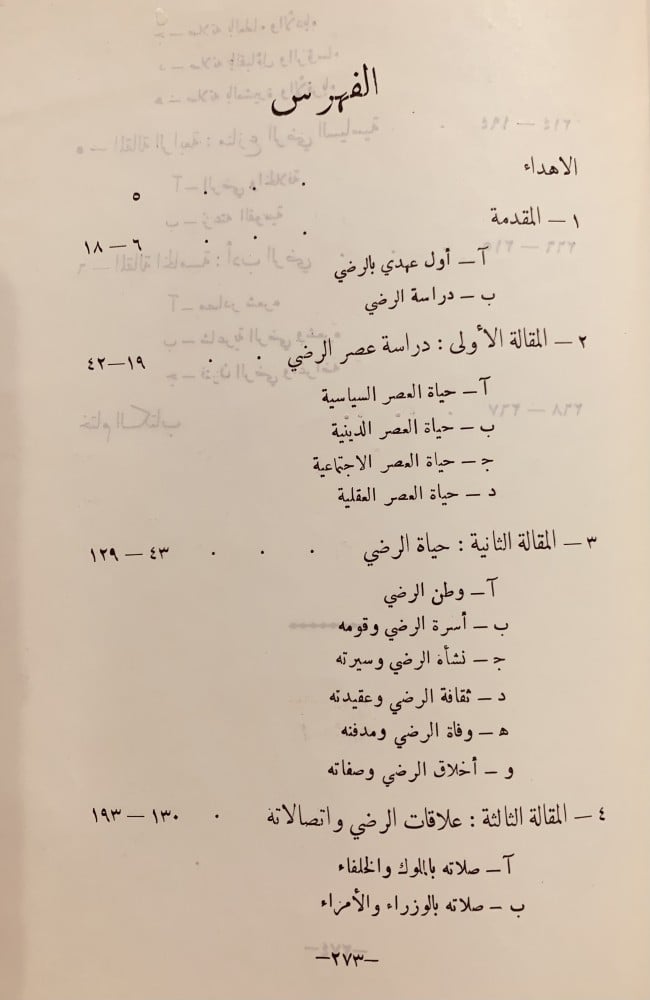 الفهرس
الاهداء . . . ٥
١ — المقدمة . . . ٦ — ١٨
آ — أول عهدي بالرضي
ب — دراسة الرضي
٢ — المقالة الأولى : دراسة عصر الرضي . . ١٩—٤٢
آ — حياة العصر السياسية
ب — حياة العصر الدينية
ج — حياة العصر الاجتماعية
د — حياة العصر العقلية
٣ — المقالة الثانية : حياة الرضي . . . ٤٣ — ١٢٩
آ — وطن الرضي
ب — أسرة الرضي وقومه
ج — نشأة الرضي وسيرته
د — ثقافة الرضي وعقيدته
ه — وفاة الرضي ومدفنه
و — أخلاق الرضي وصفاته
٤ — المقالة الثالثة : علاقات الرضي واتصالاته . ١٣٠ — ١٩٣
آ — صلاته بالملوك والخلفاء
ب — صلاته بالوزراء والأمراء
—٢٧٣—